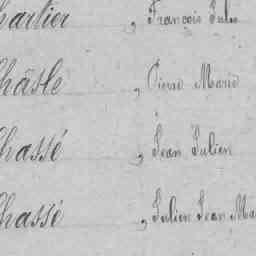 hartier , François Julie
hâsle , Pierre Marie
hassé , Jean Julien
hassé , Julien Jean Ma